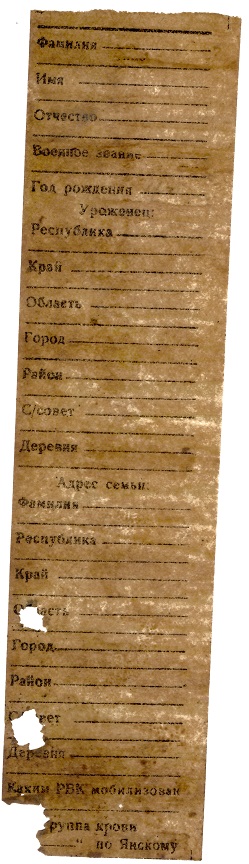 Фамилия
Имя
Отчество
Военное звание
Год рождения
Уроженец:
Республика
Край
Область
Город
Район
С/совет
Деревня
Адрес семьи:
Фамилия
Республика
Край
О асть
Город
Район
С вет
Деревня
Каким РВК мобилизован
руппа крови
" по Янскому